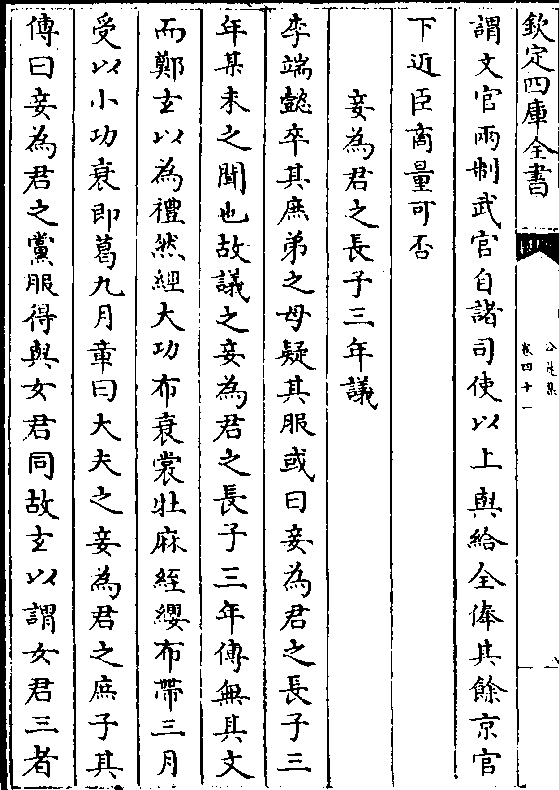 欽定四庫全書
公是集
卷四十一
謂文官兩制武官自諸司使以上與給全俸其餘京官
下近臣商量可否
妾為君之長子三年議
李端懿卒其庶弟之母疑其服或曰妾為君之長子三
年某未之聞也故議之妾為君之長子三年傳無其文
而鄭玄以為禮然經大功布衰裳牡麻絰纓布帶三月
受以小功衰即葛九月章曰大夫之妾為君之庶子其
傳曰妾為君之黨服得與女君同故玄以謂女君三者